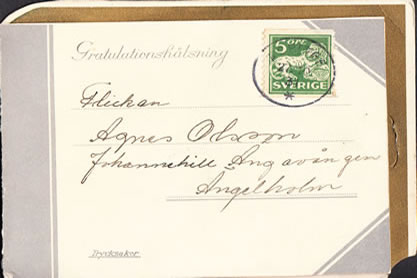 Gratulationshälsning
5 ÖRE
SVERIGE
Flickan
Agnes Olsson
Johannehill Ängavången
Ängelholm
Trycksaker